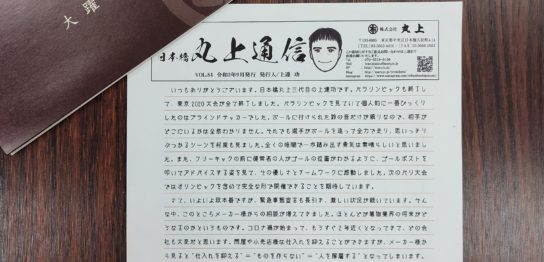 大曜
日本橋 丸上通信
VOL.84 令和3年9月発行 発行人/上達 功
株式会社 丸上
いつもありがとうございます。日本橋丸上三代目の上達功です。パラリンピックも終了し
て、東京2020大会が全て終了しました。パラリンピックを見ていて個人的に一番びっくり
したのはブラインドサッカーでした。ボールに付けられた鈴の音だけが頼りなので、相手が
どこにいるかは全然わかりません。それでも選手がボールを追って全力で走り、思いっきり
ぶつかるシーンを何度も見ました。全くの暗闇で一歩踏み出す勇気は素晴らしいと思いまし
た。また、フリーキックの前に健常者の人がゴールの位置がわかるように、ゴールポストを
叩いてアドバイスする姿を見て、その優しさとチームワークに感動しました。次のパリ大会
ではオリンピックを含めて完全な形で開催できることを期待しています。
さて、いよいよ秋本番ですが、緊急事態宣言も長引き、厳しい状況が続いています。そん
な中、このところメーカー様からの相談が増えてきました。ほとんどが着物業界の将来がど
うなるのかというものです。コロナ禍が始まって、もうすぐ2年近くとなってきて、どの会
社も大変だと思います。問屋や小売店様なら仕入れを抑えることができますが、メーカー様か
ら見ると"仕入れを抑える"="ものを作らない"="人を解雇する"となってしまいます。